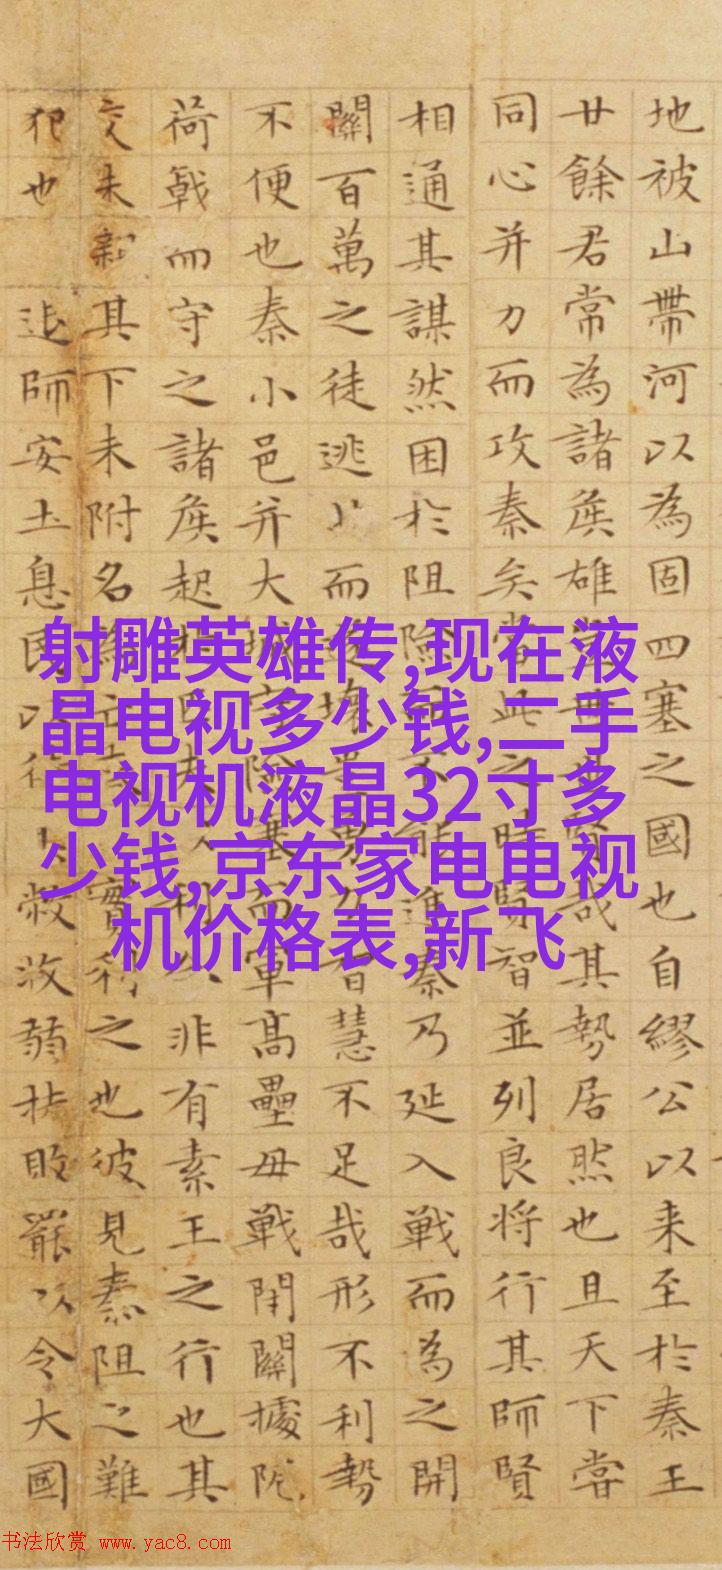 地被山帶河以為固四塞之國也自繆公以来至於秦王
廿餘君常為諸侯雄哉其勢居然也且天下嘗
同心并力而攻秦矣當此之時賢智並列良将行其師賢
相通其謀然困於阻險不能進秦乃延入戰而為之開
關百萬之徒逃而壞勇力智慧不足哉形不利勢
不便也秦小邑并大城守險塞而軍高壘毋戰閉關據阨
荷戟而守之諸侯起於夫利非有素王之行也其
交未親其下未附名為實利之也彼見秦阻之難
犯也師安土息民以待敝收弱扶敗罷以令大國
射雕英雄传,现在液
晶电视多少钱,二手
电视机液晶32寸多
少钱,京东家电电视
机价格表,新飞
书法欣赏 www.yac8.com